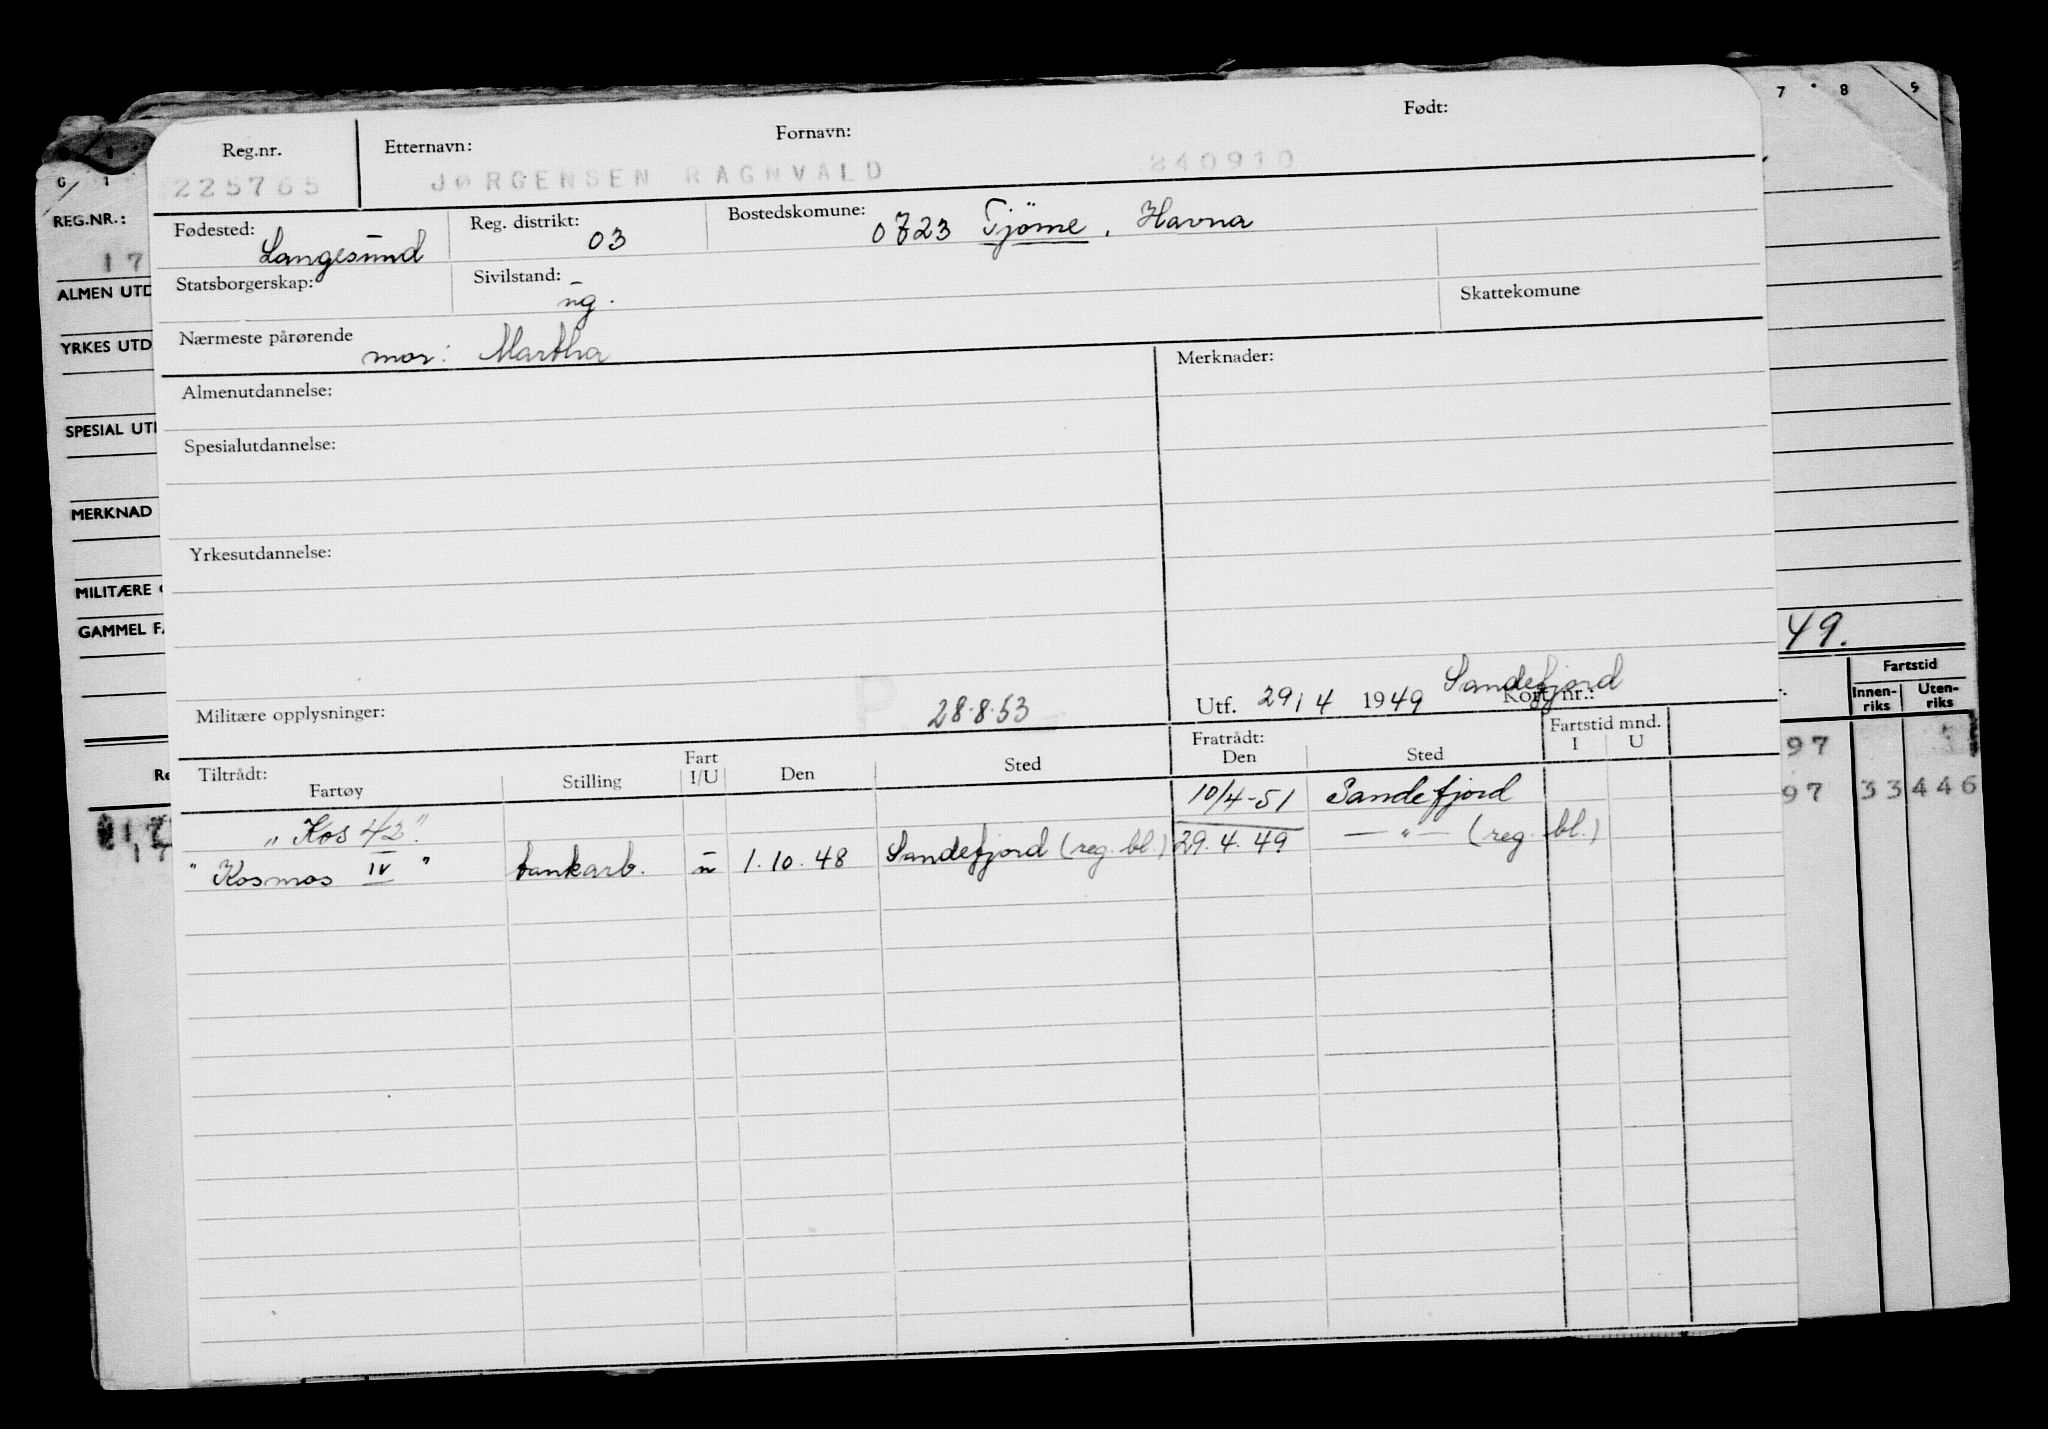 7 8 9
0 1
Reg.nr. Etternavn: Fornavn: Født:
225765 JØRGENSEN RAGNVALD 240910
REG.NR.:
17
Fødested: Langesund Reg. distrikt: 03 Bostedskomune: 0723 Tjöme, Havna
Statsborgerskap: Sivilstand: ug. Skattekomune
ALMEN UTD
Nærmeste pårørende mor: Martha
YRKES UTD
Almenutdannelse: Merknader:
SPESIAL UT
Spesialutdannelse:
MERKNAD
Yrkesutdannelse:
MILITÆRE
GAMMEL FA
49.
Militære opplysninger: 28.8.53 Utf. 29/4 1949 Sandefjord Kort nr.:
Fartstid
Innen-riks Uten-riks
Tiltrådt: Fratrådt: Fartstid mnd.
Fartøy Stilling Fart I/U Den Sted Den Sted I U
97
97 33 446
"Kos 42" 10/4-51 Sandefjord
"Kosmos IV" tankarb. u 1.10.48 Sandefjord (reg. bl.) 29.4.49 —"— (reg. bl.)
Re
17